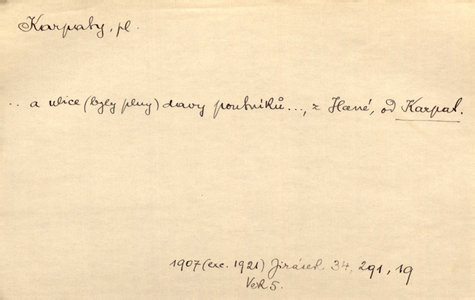 Karpaty, pl.
.. a ulice (byly plny) davy poutníků..., z Hané, od Karpat.
1907 (exc. 1921) Jirásek. 34, 291, 19
Věk 5.